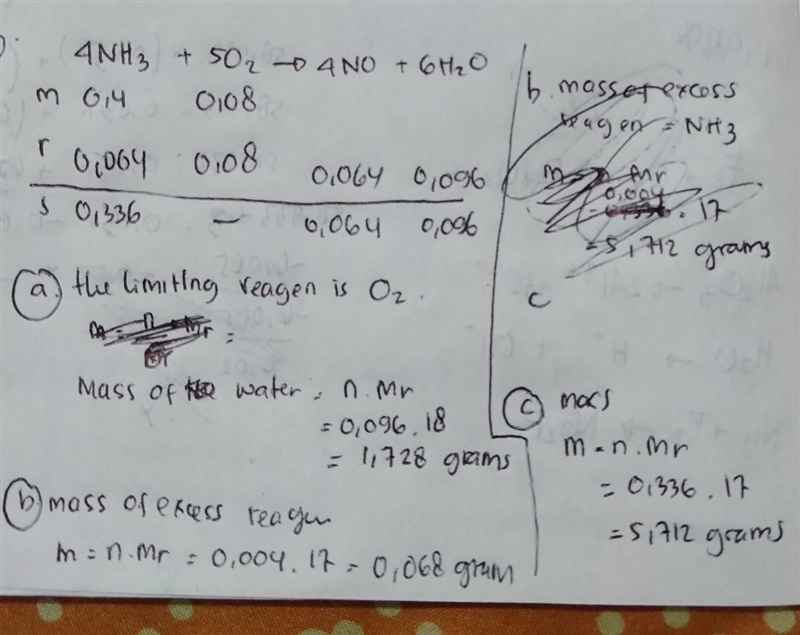 4NH3 + 5O2 → 4NO + 6H2O
m 0,4 0,08
r 0,064 0,08 0,064 0,096
s 0,336 – 0,064 0,096
(a) the limiting reagen is O2.
m = n . Mr =
Mass of water = n . Mr
= 0,096 . 18
= 1,728 grams
(b) mass of excess reagen
m = n . Mr = 0,004 . 17 = 0,068 gram
b. mass of excess
reagen = NH3
m = n Mr
0,004
= 0,336 . 17
= 5,712 grams
c
(c) mass
m = n . Mr
= 0,336 . 17
= 5,712 grams